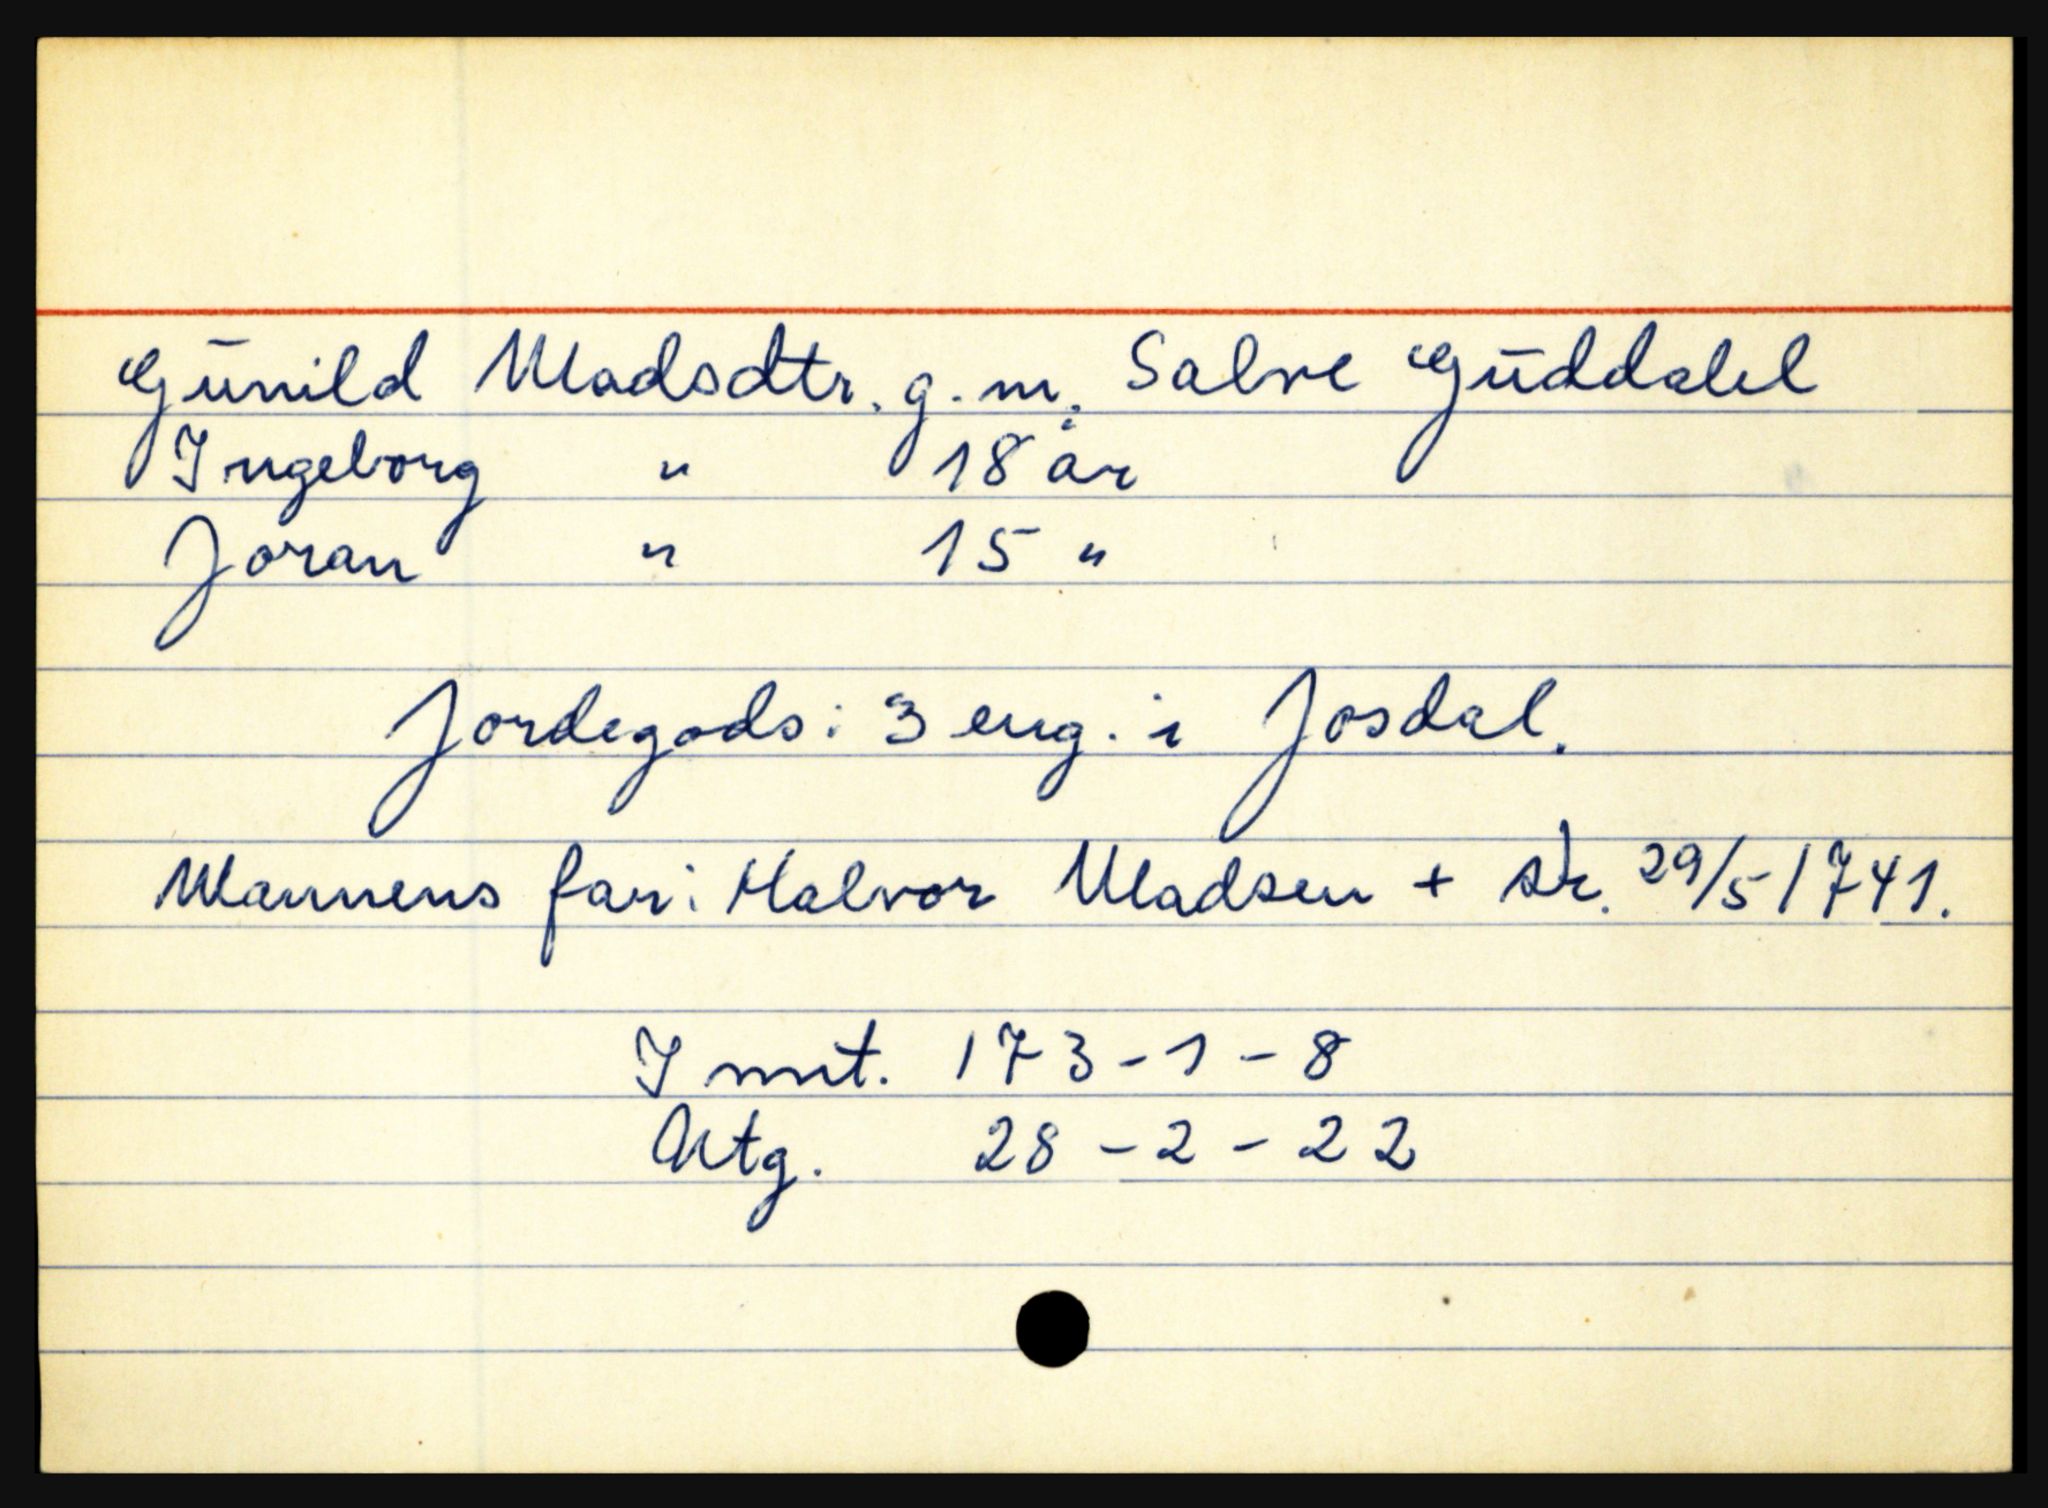 Gunild Madsdtr. g. m. Salve Guddalel
Ingeborg " 18 år
Joran " 15 "
Jordegods: 3 eng. i Josdal.
Mannens far: Halvor Madsen + sk. 29/5 1741.
Innt. 173-1-8
Utg. 28-2-22